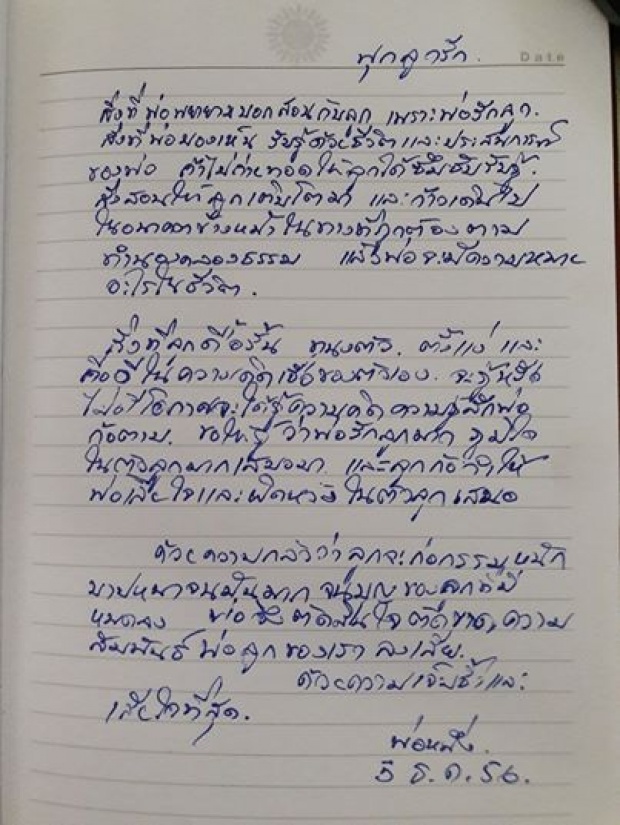 Date
ฟุกลูกรัก.
สิ่งที่พ่อพยายามบอกสอนกับลูก เพราะพ่อรักลูก.
สิ่งที่พ่อมองเห็น รับรู้ด้วยชีวิต และประสบการณ์
ของพ่อ ถ้าไม่ถ่ายทอดให้ลูกได้ซึมซับรับรู้.
สั่งสอนให้ลูกเติบโตมา และก้าวเดินไป
ในอนาคตข้างหน้า ในทางที่ถูกต้องตาม
ทำนองคลองธรรม แล้วพ่อจะมีความหมาย
อะไรในชีวิต.
สิ่งที่ลูกดื้อรั้น ทนงตัว. ตั้งแง่ และ
ถือดี ในความคิดเชื่อของตัวเอง. จะรู้หรือ
ไม่มีโอกาสจะได้รู้ความคิดความรู้สึกพ่อ
ก็ตาม. ขอให้รู้ว่าพ่อรักลูกมาก ภูมิใจ
ในตัวลูกมากเสมอมา และลูกก็ทำให้
พ่อเสียใจและผิดหวัง ในตัวลูกเสมอ
ด้วยความกลัวว่าลูกจะก่อกรรมหนัก
บาปหนาจนมันมาก จนบุญของลูกที่มี
หมดลง พ่อจึงตัดสินใจ ตัดขาด, ความ
สัมพันธ์ พ่อลูกของเรา ลงเสีย.
ด้วยความเจ็บช้ำและ
เสียใจที่สุด.
พ่อหนึ่ง.
5 ธ.ค. 56.